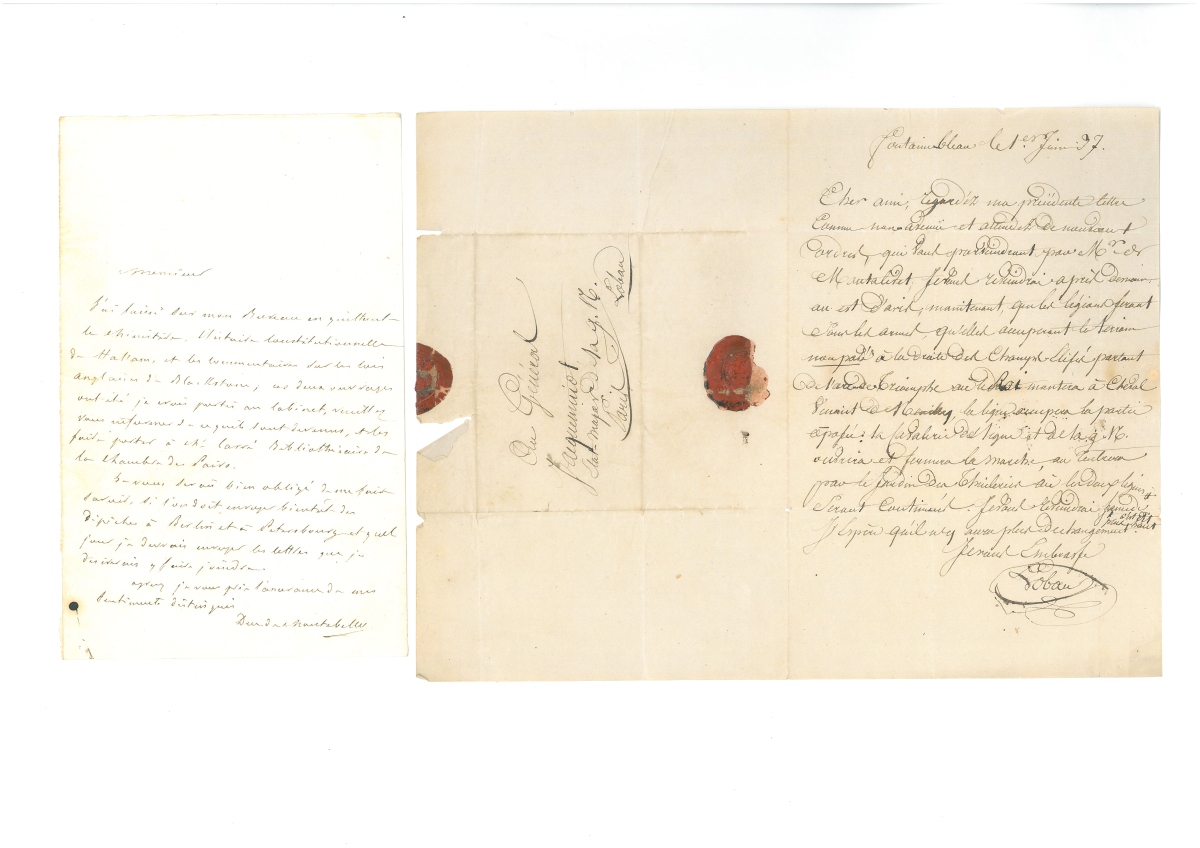 Monsieur
J'ai laissé sur mon Bureau en quittant
le ministère l'histoire Constitutionnelle
de Hallam, et les Commentaires sur les lois
anglaises de Blackstone; ces deux ouvrages
ont été je crois portés au cabinet, veuillez
vous informer de ce qu'ils sont devenus, et les
faire porter à chez Bibliothécaire de
la Chambre des Pairs.
Je vous serais bien obligé de me faire
savoir si l'on doit envoyer bientôt des
dépêches à Berlin et à Petersbourg et quel
jour je devrais envoyer les lettres que je
désirerais y faire joindre.
agréez je vous prie l'assurance de mes
sentiments distingués
Duc de Montebello
Au Général
Jacqueminot
Etat-major de la g. N.
Paris
Lobau
Fontainebleau le 1er Juin 37.
Cher ami, regardéz ma précédente lettre
comme non avenue et attendez de nouveaux
ordres, qui vous parviendront par Mr de
Montalivet. Je vous reviendrai après demain.
on est d'avis, maintenant, que les légions seront
sous les armes qu'elles occuperont le terrain
non pavé à la droite des Champs Elisés partant
de l'arc de Triomphe où le Roi montera à cheval
venant de Neuilly, la ligne occupera la partie
opposée: la Cavalerie de ligne et de la g. N.
ouvrira et fermera la marche, on rentrera
par le Jardin des Thuileries où les deux lignes
seront continués. Je vous reviendrai samedi
J'espère qu'il n'y aura plus de changement
Je vous Embrasse
Lobau